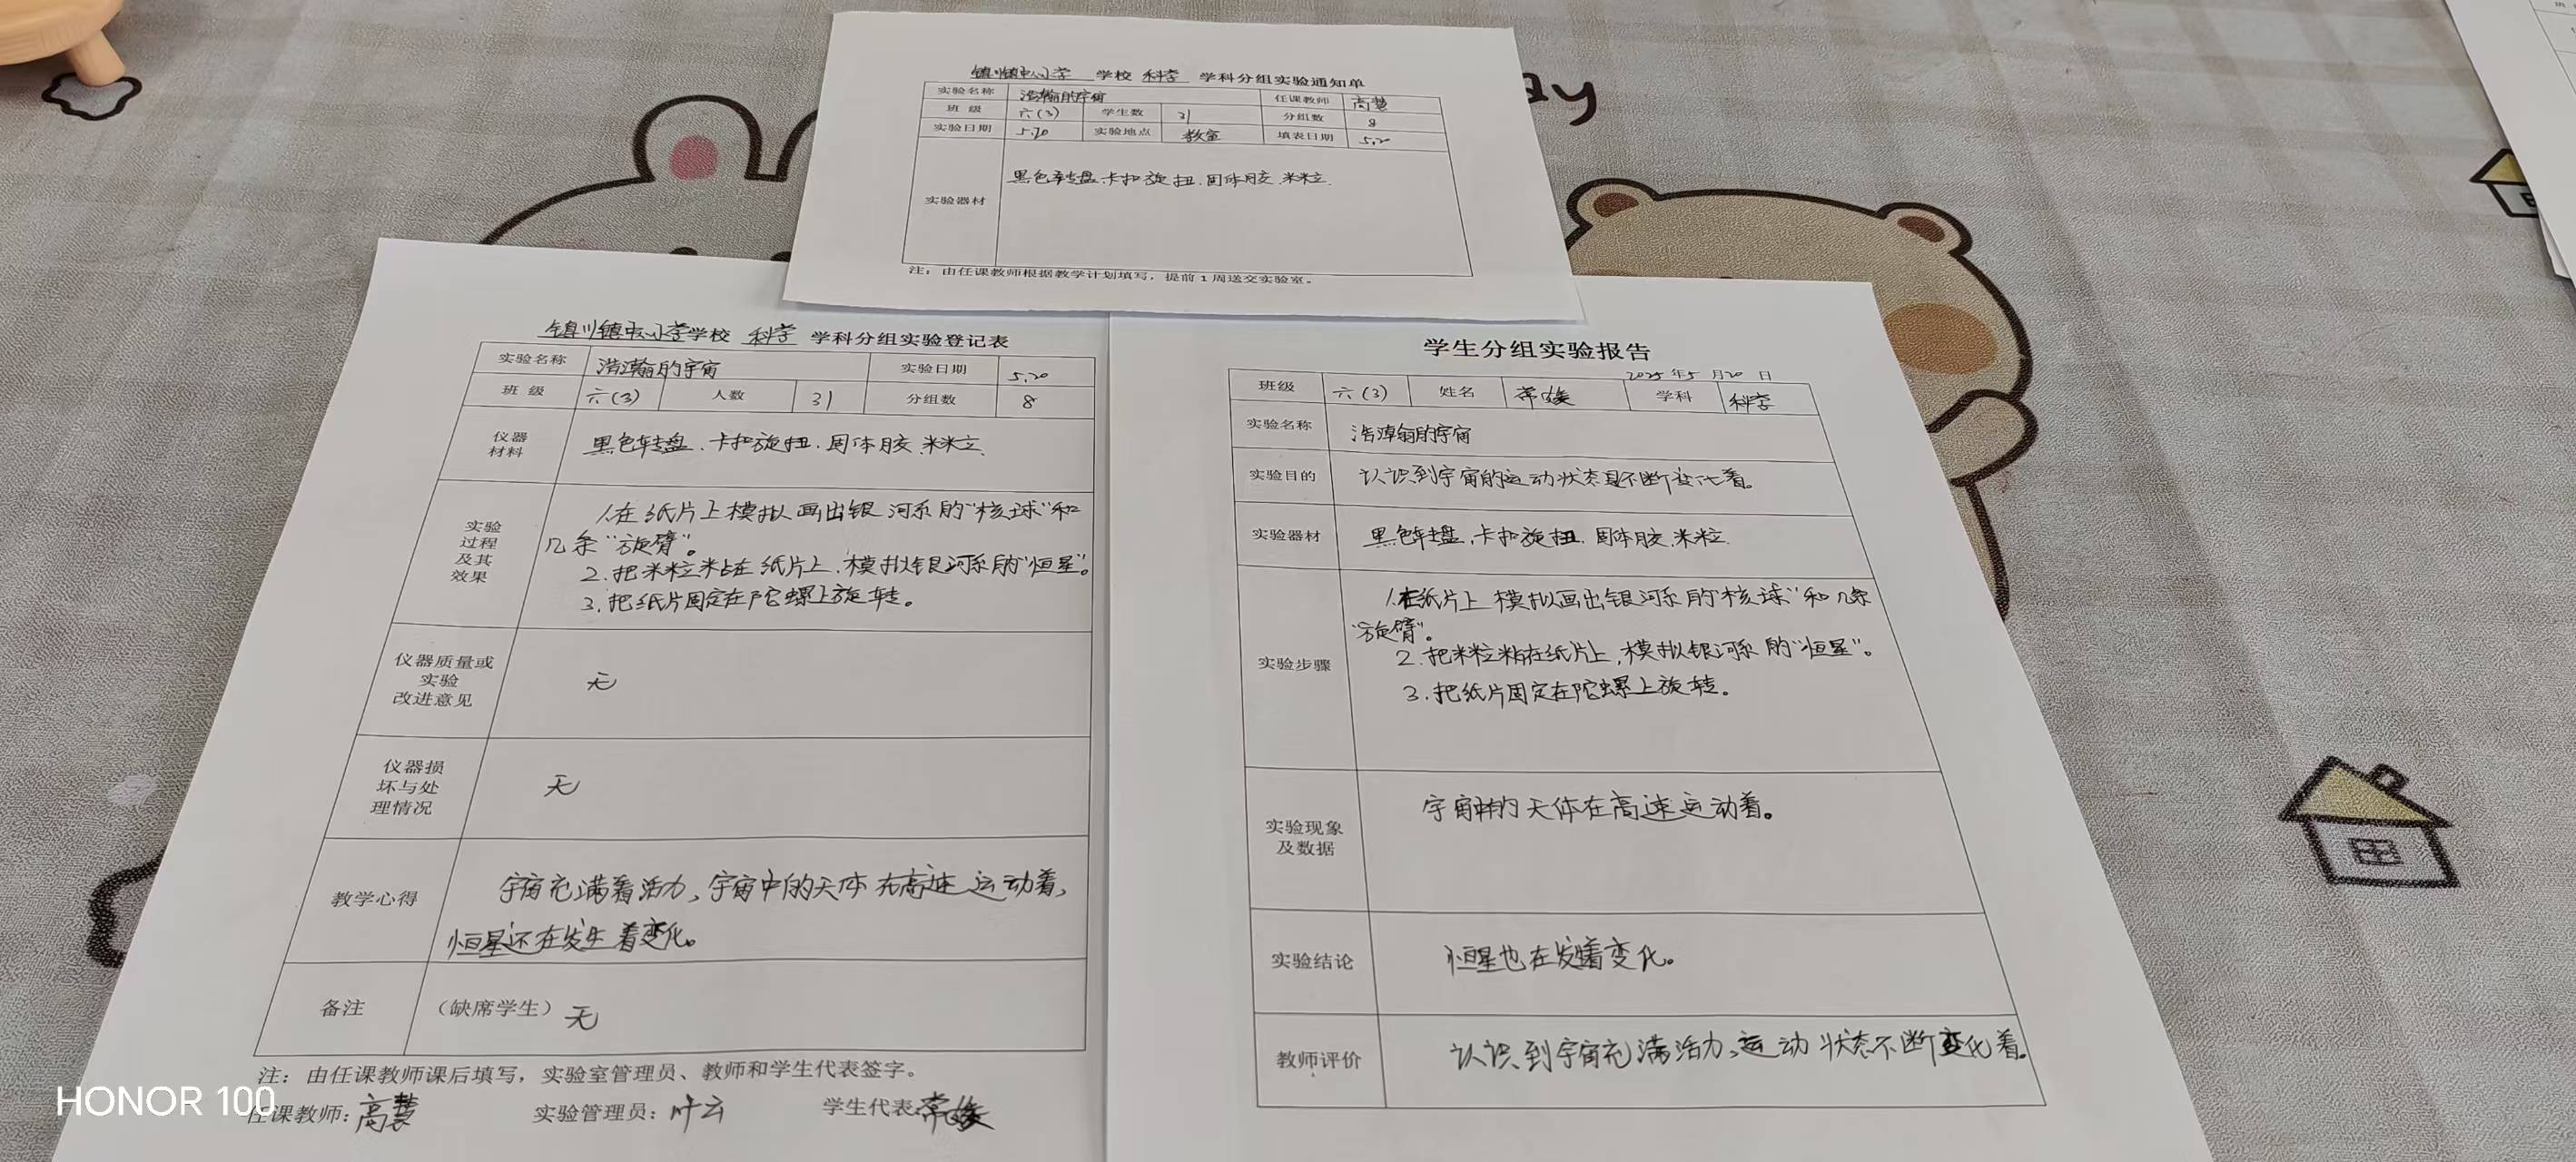 镇川镇中心小学 学校 科学 学科分组实验通知单
实验名称 浩瀚的宇宙 任课教师 高慧
班 级 六(3) 学生数 31 分组数 8
实验日期 5.20 实验地点 教室 填表日期 5.20
实验器材 黑色转盘、卡扣旋扭、固体胶、米粒
注：由任课教师根据教学计划填写，提前1周送交实验室。
镇川镇中心小学学校 科学 学科分组实验登记表
实验名称 浩瀚的宇宙 实验日期 5.20
班 级 六(3) 人数 31 分组数 8
仪器
材料
黑色转盘、卡扣旋扭、固体胶、米粒
实验
过程
及其
效果
1.在纸片上模拟画出银河系的“核球”和
几条“旋臂”。
2.把米粒粘在纸片上，模拟银河系的“恒星”。
3.把纸片固定在陀螺上旋转。
仪器质量或
实验
改进意见
无
仪器损
坏与处
理情况
无
教学心得
宇宙充满着活力，宇宙中的天体在高速运动着，
恒星还在发生着变化。
备注 （缺席学生）无
注：由任课教师课后填写，实验室管理员、教师和学生代表签字。
任课教师：高慧 实验管理员：叶云 学生代表：常媛
学生分组实验报告
2025年5月20日
班级 六(3) 姓名 常媛 学科 科学
实验名称 浩瀚的宇宙
实验目的 认识到宇宙的运动状态是不断变化着。
实验器材 黑色转盘、卡扣旋扭、固体胶、米粒
实验步骤
1.在纸片上模拟画出银河系的“核球”和几条
“旋臂”。
2.把米粒粘在纸片上，模拟银河系的“恒星”。
3.把纸片固定在陀螺上旋转。
实验现象
及数据
宇宙中的天体在高速运动着。
实验结论 恒星也在发生着变化。
教师评价 认识到宇宙充满活力，运动状态不断变化着。
HONOR 100